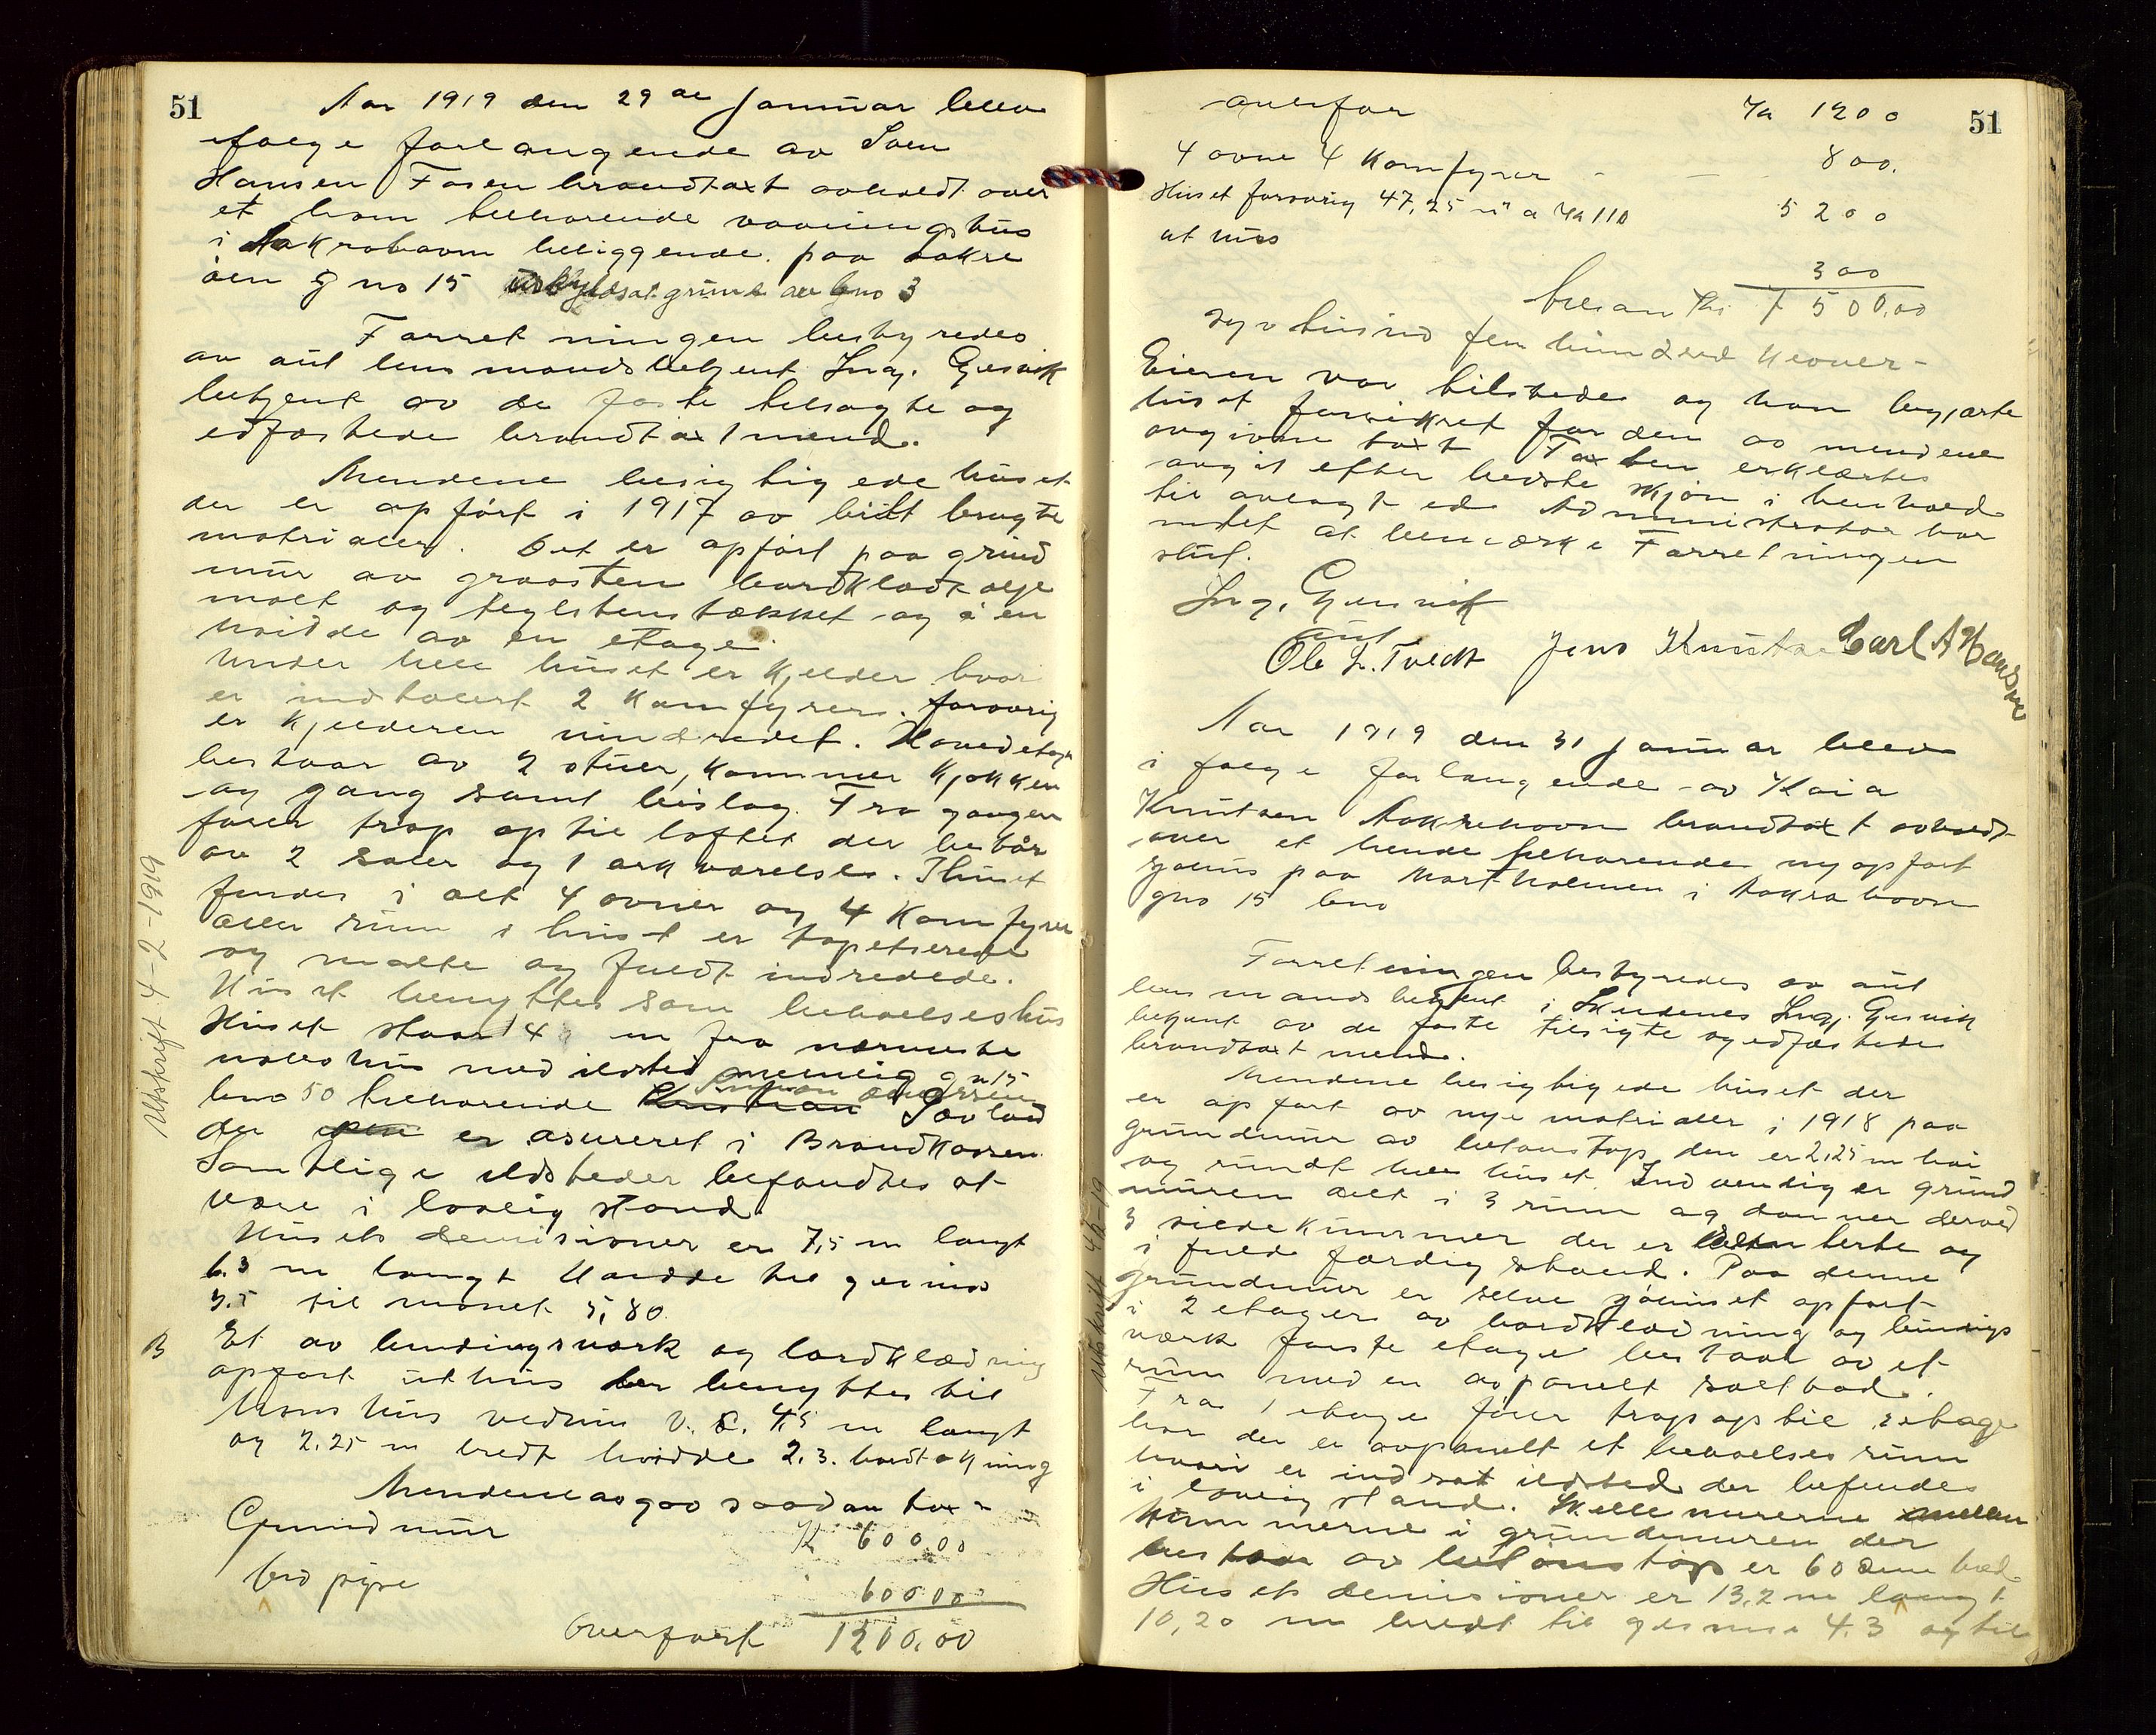 51
Aar 1919 den 29de Januar blev
ifølge forlangende av Sven
Hansen Fosen brandtaxt avholdt over
et ham tilhørende vaaningshus
i Aakrehavn beliggende paa Aakre
øen g no 15 uskyldsat grund av bno 3
Forretningen bestyredes
av aut lensmandsbetjent Ing. Gjesvik
betjent av de faste tilsagte og
edfæstede brandtaxtmend.
Mendene besigtigede huset
der er opført i 1917 av bilt brugte
matrialer. Det er opført paa grund
mur av graasten bordklædt olje
malt og teglstenstækket og i en
høidde av en etage.
Under hele huset er kjelder hvor
er indtalert 2 Komfyrer. forøvrig
er kjelderen uindredet. Hovedetage
bestaar av 2 stuer, kammer kjøkken
og gang samt bislag. Fra gangen
fører trap op til loftet der består
av 2 saler og 1 ark værelse. I huset
findes i alt 4 ovner og 4 Komfyrer
aller rum i huset er tapetserede
og malte og fuldt indredede.
Huset benyttes som beboelseshus
Huset staar 4 m fra nærmeste
nabohus med ildsted nemlig gn 15
bno 50 tilhørende Kristian Sævland
der er asureret i Brandkassen.
Samtlige ildsteder befandtes at
være i lovlig stand.
Husets demisioner er 7,5 m langt
6.3 m langt Høidde til gesims
3.5 til mønet 5,80.
B Et av bindingsverk og bordklædning
opført uthus der benyttes til
hønshus vedrum v. c. 4.5 m langt
og 2.25 m bredt høidde 2.3. bordtækning
Mendene avgav saadan taxt
Grundmur K 600,00
bro pipe 600,00
Overført 1200,00
Utskrift 4-2-1919
51
overfør Kr 1200
4 ovne 4 Komfyrer - - 800.
Huset forøvrig 47,25 m² a Kr 110 5200
ut hus
300
Tilsam Kr 7500,00
syv tusind fem hundred Kroner -
Eieren var tilstede og han begjærte
huset forsikret for den av mendene
avgivne taxt Taxten erklærtes
avgit efter bedste skjøn i henhold
til avlagt ed. Administrator har
intet at bemærke Forretningen
slut.
Ing. Gjesvik
aut
Ole L. Tvedt Jens Knutsen Carl A Hansen
Aar 1919 den 31 Januar blev
i følge forlangende av Kaia
Knutsen Aakrehavn brandtaxt avholdt
over et hende tilhørende nyopført
sjøhus paa Kortholmen i Aakrehavn
gno 15 bno
Forretningen bestyredes av aut
lensmandsbetjent i Skudenes Ing. Gjesvik
betjent av de faste tilsigte og edfæstede
brandtaxt mend.
Mendene besigtigede huset der
er opført av nye matrialer i 1918 paa
grundmur av betonstøp den er 2,25 m høi
og rundt hele huset. Indvendig er grund
muren delt i 3 rum og danner derved
3 sildekummer der er tette og
i fuld færdig stand. Paa denne
grundmur er selve sjøhuset opført
i 2 etager av bordklædning og bindings
værk første etage bestaar av et
rum med en avpanelt saltbod.
Fra 1 etage fører trap op til 2 etage
hvor der er avpanelt et beboelses rum
hvori er indsat ildsted der befindes
i lovlig stand. Skillemurerne mellem
kummerne i grundmuren der
bestaar av betonstøp er 60 cm bred
Husets demisioner er 13,2 m langt
10,20 m bredt til gesims 4.3 og til
Utskrift 4/2-19